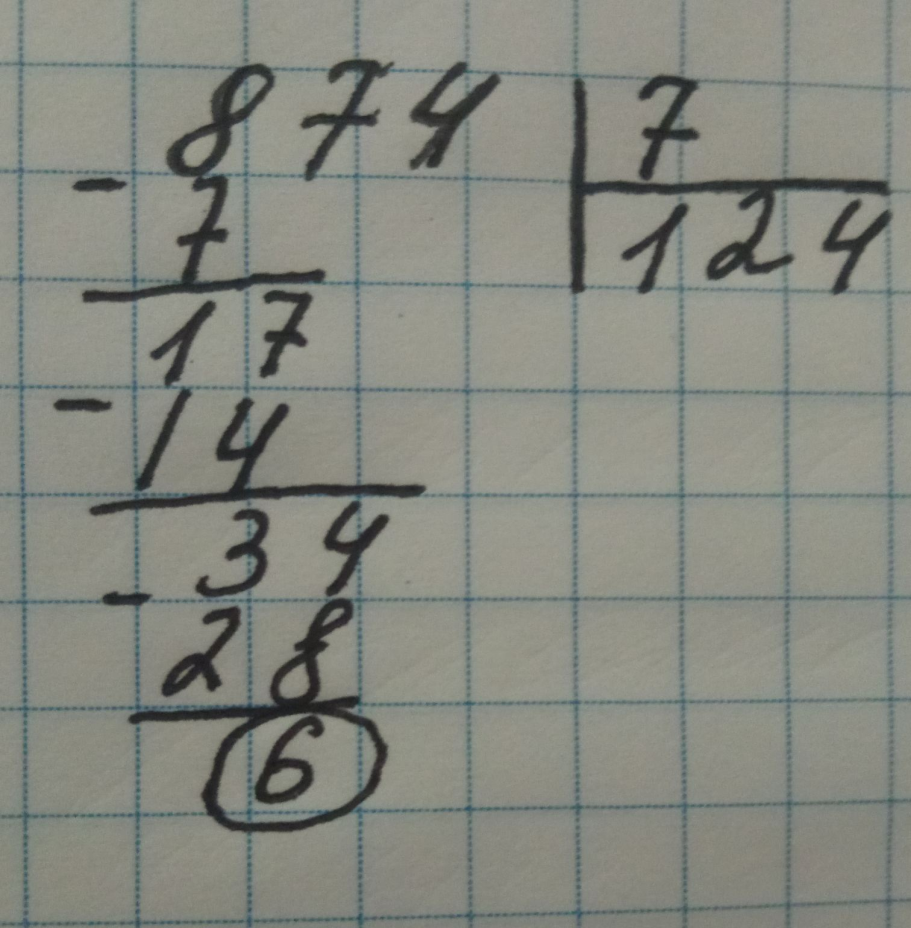 874 | 7
- 7 | 124
17
- 14
34
- 28
6